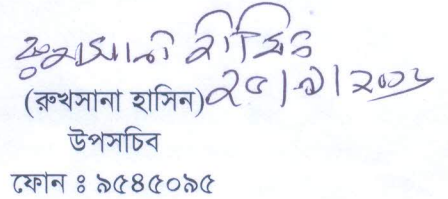 রুখসানা হাসিন
(রুখসানা হাসিন)
উপসচিব
ফোন ঃ ৯৫৪৫০৯৫